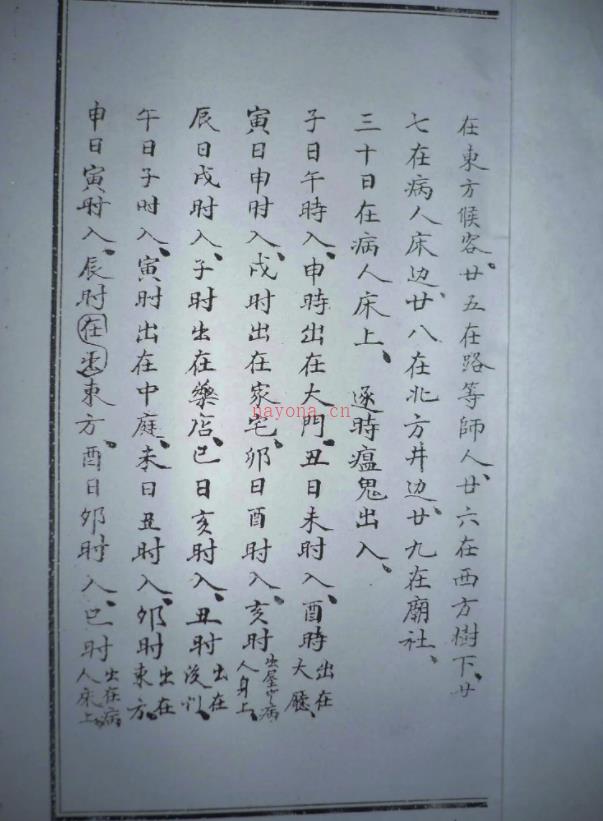 在東方候客、廿五在路等師人、廿六在西方樹下、廿
七在病人床边、廿八在北方井边、廿九在廟社、
三十日在病人床上、 逐時瘟鬼出入、
子日午時入、申時出在大門、丑日未时入、酉時出在大廳、
寅日申时入、戌时出在家宅、卯日酉时入、亥时出屋病人身上、
辰日戌时入、子时出在藥店、巳日亥时入、丑时出在
午日子时入、寅时出在中庭、未日丑时入、卯时出在東方、
申日寅时入、辰时在出東方、酉日卯时入、巳时出在病人床上、
nayona.cn